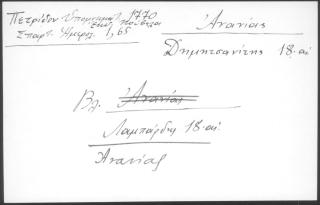 Πετρίδου Ὑπομνημ. 1770
Σπαρτ. Ἡμερολ. 1, 65
Ἀνανίας
Δημητσανίτης 18. αἰ
Βλ. Ἀνανίας
Λαμπάρδης 18. αἰ.
Ἀνανίας